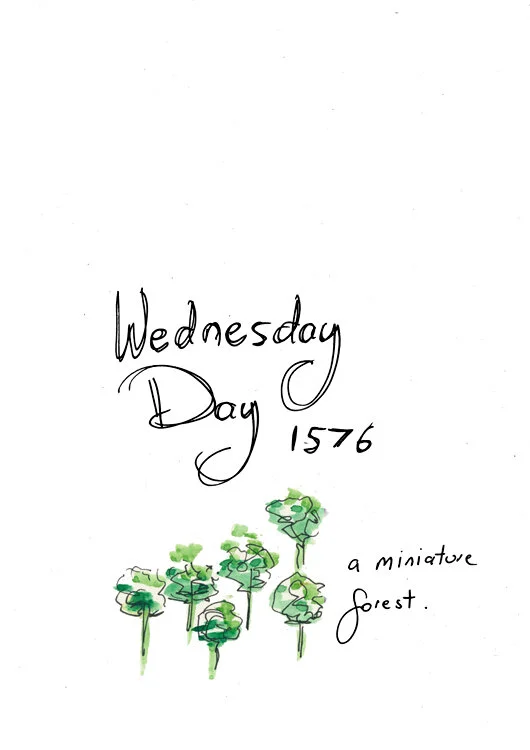 Wednesday
Day 1576
a miniature
forest.